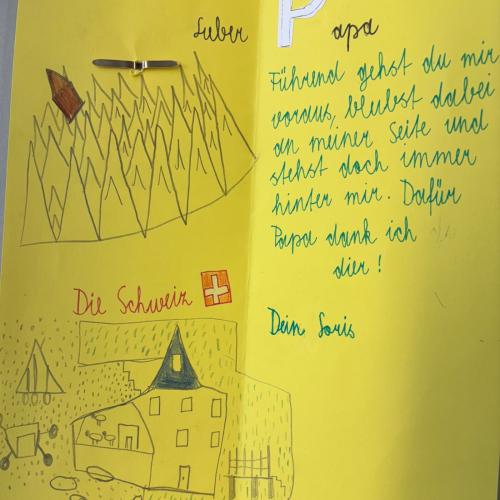 Lieber Papa
Führend gehst du mir
voraus, bleibst dabei
an meiner Seite und
stehst doch immer
hinter mir. Dafür
Papa dank ich
dier!
Dein Loris
Die Schweiz